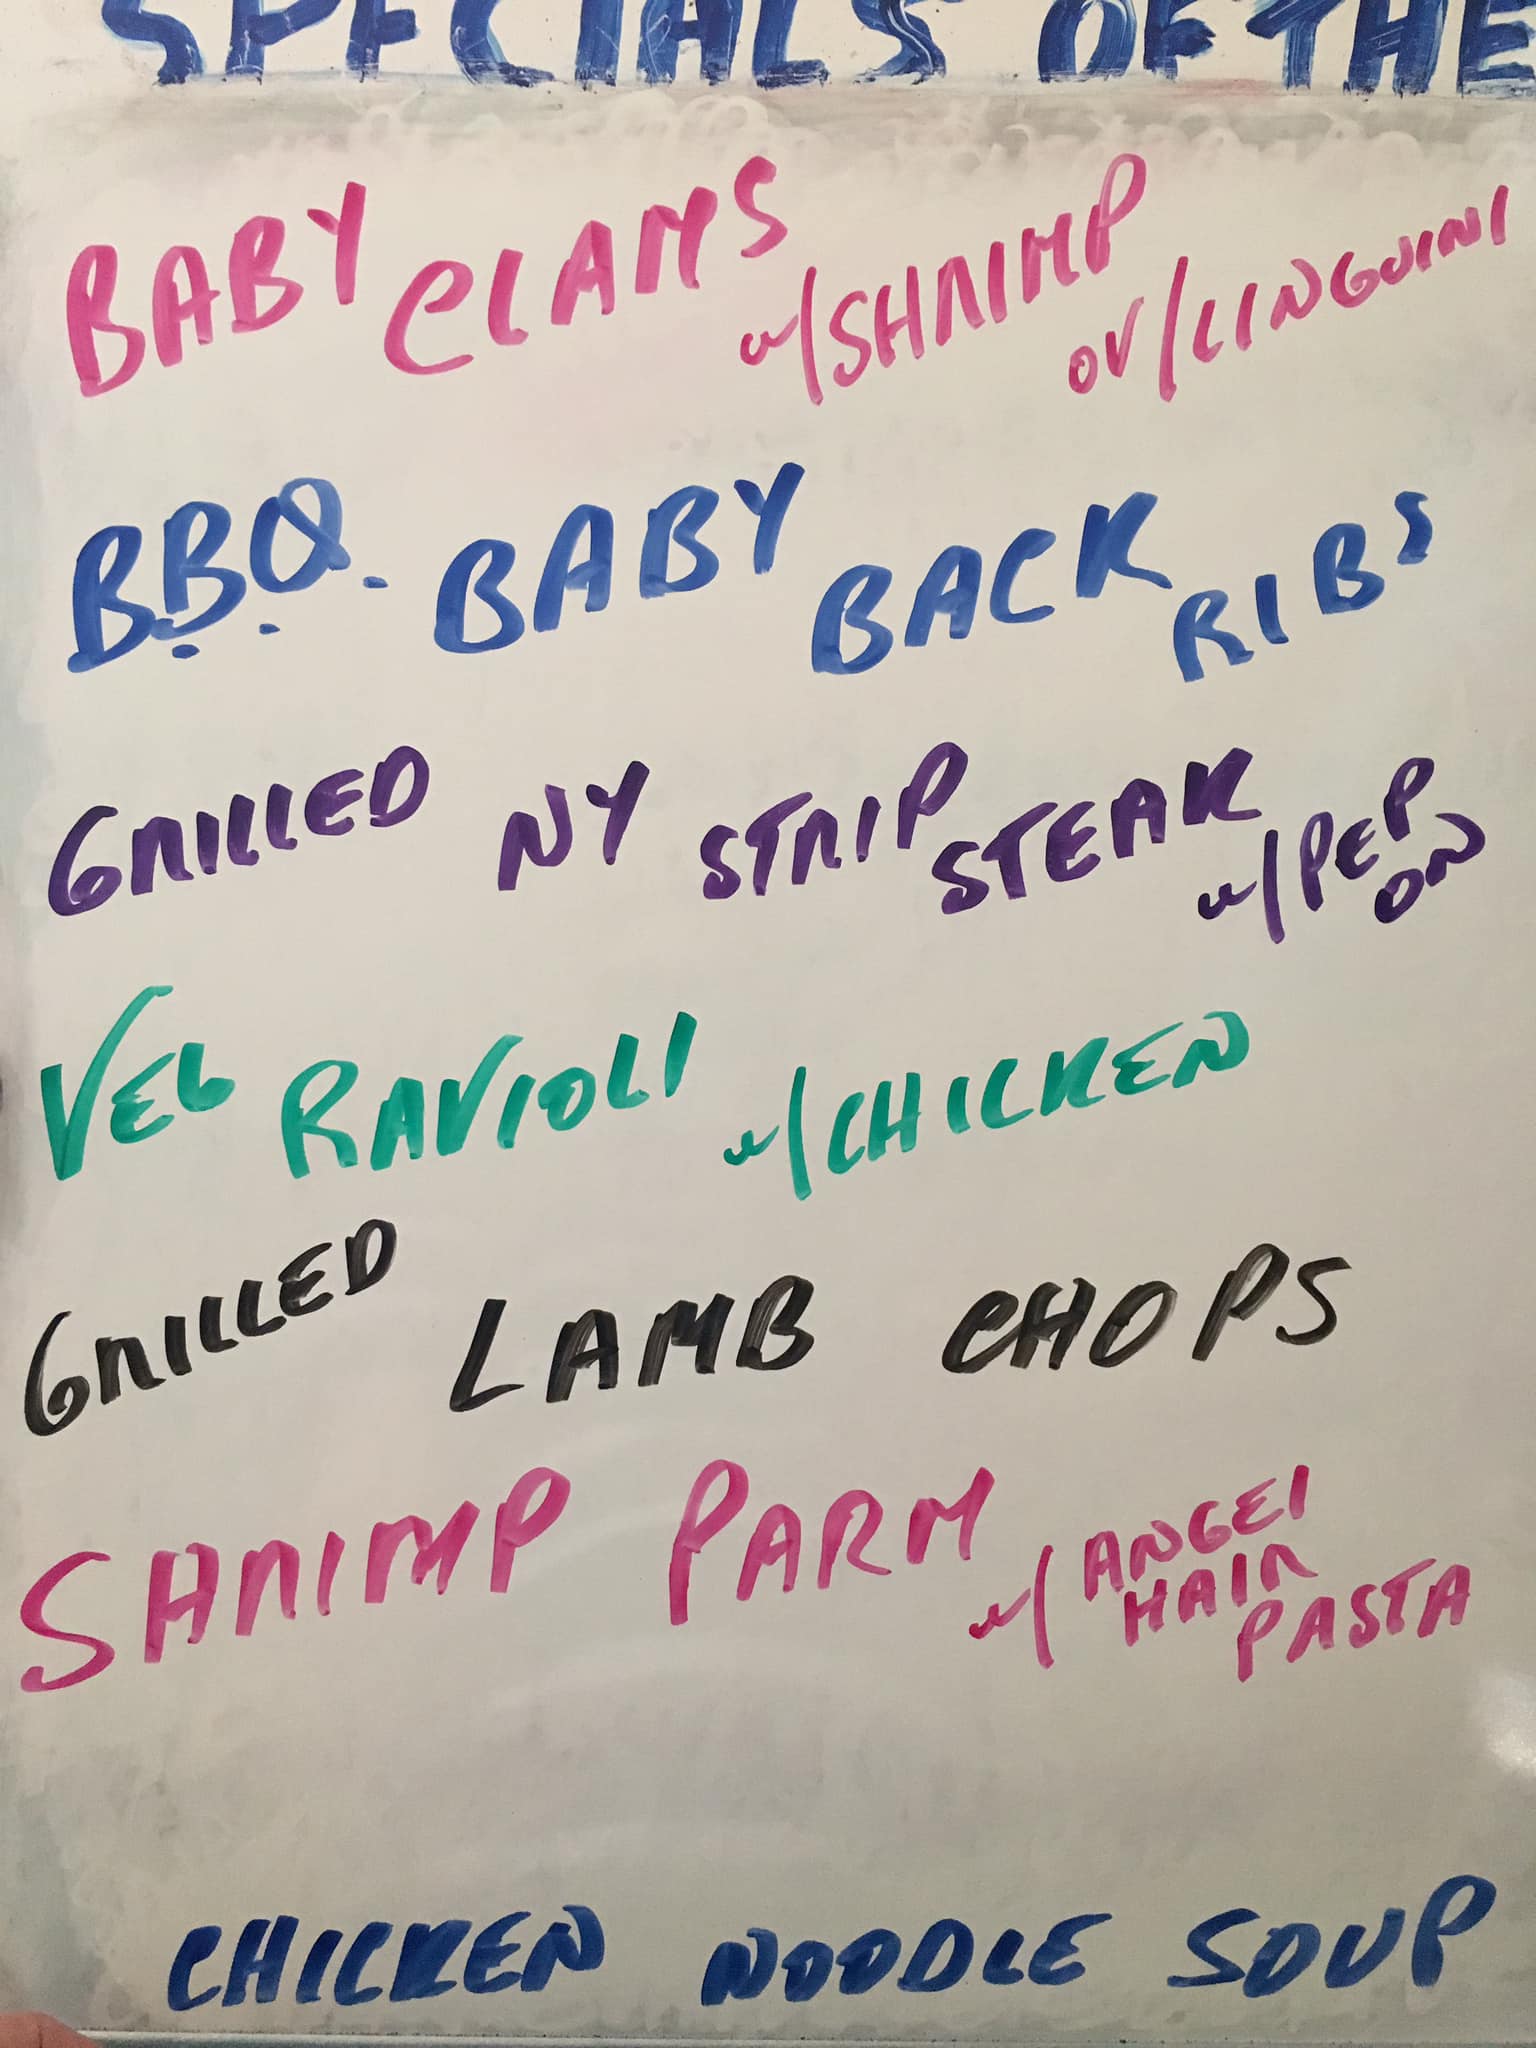 SPECIALS OF THE
BABY CLAMS w/SHRIMP OV/LINGUINI
B.B.Q. BABY BACK RIBS
GRILLED NY STRIP STEAK w/PEP ON
VEG RAVIOLI w/CHICKEN
GRILLED LAMB CHOPS
SHRIMP PARM w/ANGEL HAIR PASTA
CHICKEN NOODLE SOUP